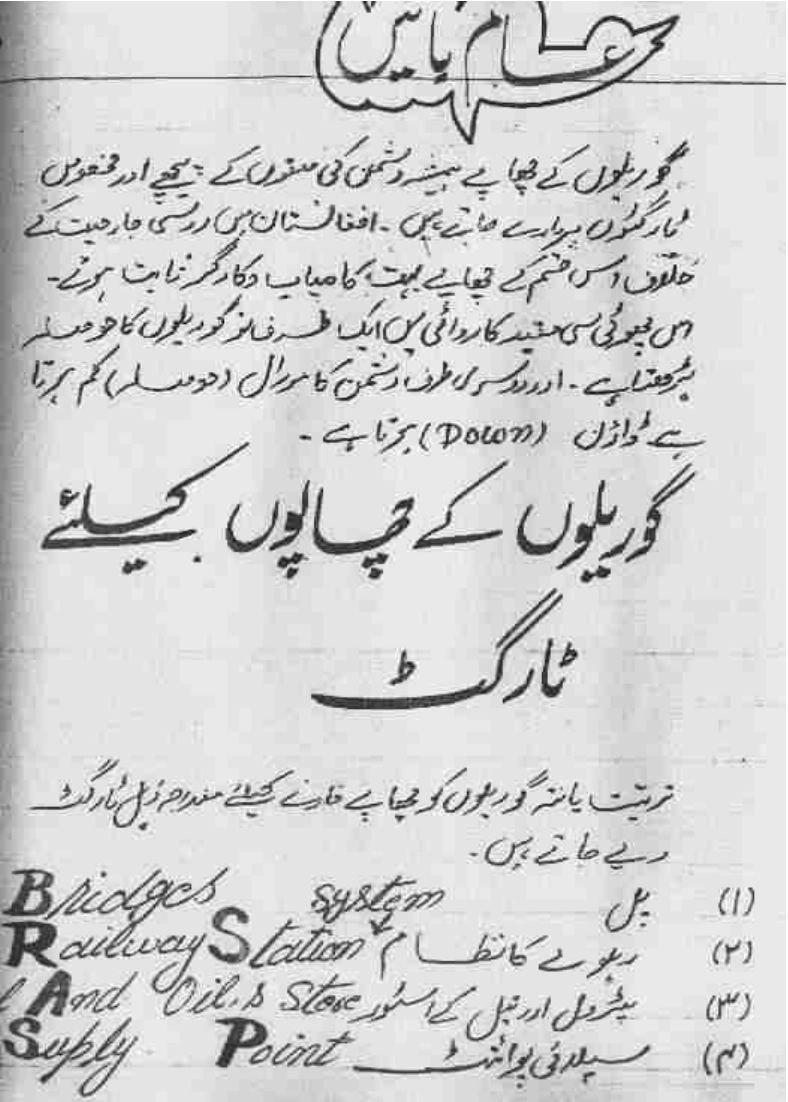 عام باتیں
گوریلوں کے چھاپے ہمیشہ دشمن کی صفوں کے پیچھے اور مخصوص
ٹارگٹوں پر مارے جاتے ہیں ۔ افغانستان میں روسی جارحیت کے
خلاف اس قسم کے چھاپے بہت کامیاب و کارگر ثابت ہوئے ۔
اس چھوٹی سی مفید کاروائی میں ایک طرف تو گوریلوں کا حوصلہ
بڑھتا ہے ۔ اور دوسری طرف دشمن کا مورال (حوصلہ) کم ہوتا
ہے ڈاؤن (Down) ہوتا ہے ۔
گوریلوں کے چھاپوں کیلئے
ٹارگٹ
تربیت یافتہ گوریلوں کو چھاپے مارنے کیلئے مندرجہ ذیل ٹارگٹ
دیے جاتے ہیں ۔
(۱) پل Bridges system
(۲) ریلوے کا نظام Railway Station
(۳) پیٹرول اور تیل کے اسٹور And Oil.s Store
(۴) سپلائی پوائنٹ Suply Point